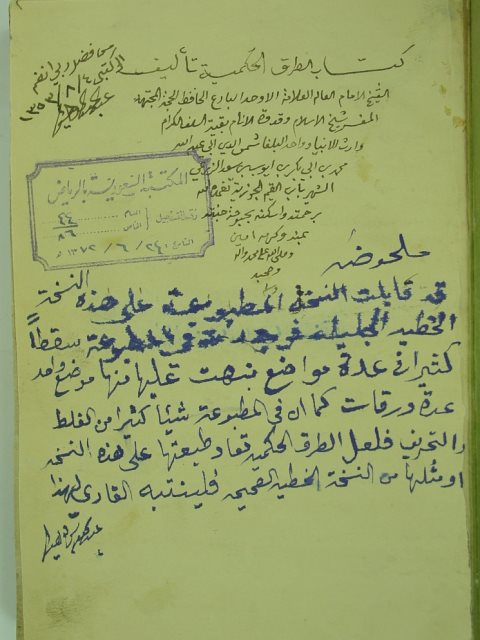 من فضل ربي انعم
الى
١٣٥٣/٨/٤
كتاب الطرق الحكمية تأليف
الشيخ الامام العالم العلامة الاوحد البارع الحافظ الحجة المجتهد
المفسر شيخ الاسلام وقدوة الأنام بقية السلف الكرام
وارث الانبيا وواحد البلغا شمس الدين ابي عبد الله
محمد بن ابي بكر بن ايوب بن سعد
الشهير بابن القيم الجوزية تغمده الله
برحمته واسكنه بحبوحة جنته
بمنه وكرمه امين
وصلى الله على محمد واله
وصحبه
المكتبة السعودية بالرياض
٤٤
٨٦
التاريخ ٢٤ / ٦ / ١٣٧٢ هـ
ملحوضه
قد قابلت النسخة المطبوعة على هذه النسخة
الخطيه الجليله فوجدت في المطبوعة سقطاً
كثيرا في عدة مواضع نبهت عليها منها موضع واحد
عدة ورقات كما ان في المطبوعة شيئا كثيرا من الغلط
والتحريف فلعل الطرق الحكميه تعاد طبعتها على هذه النسخه
او مثلها من النسخة الخطيه الصحيحه فلينتبه القارئ لهذا